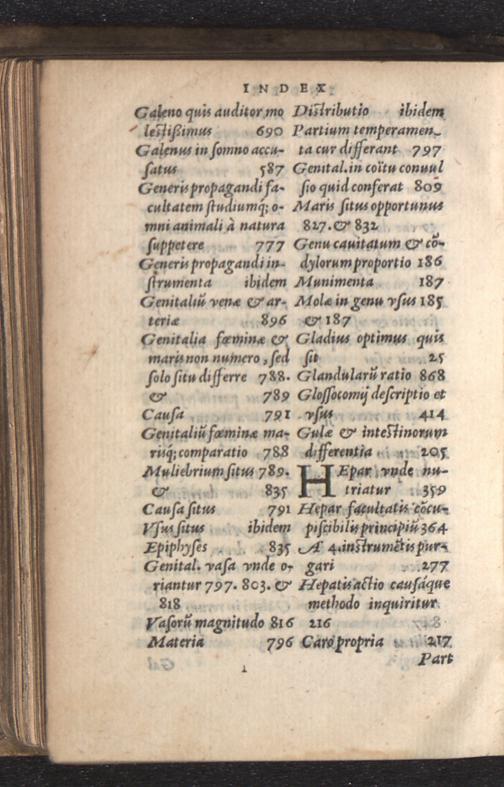 INDEX
Galeno quis auditor mo
lestißimus 690
Galenus in somno accu-
satus 587
Generis propagandi fa-
cultatem studiumq́; o-
mni animali à natura
suppetere 777
Generis propagandi in-
strumenta ibidem
Genitaliũ venæ & ar-
teriæ 896
Genitalia fœminæ &
maris non numero, sed
solo situ differre 788.
& 789
Causa 791
Genitaliũ fœminæ ma-
risq́; comparatio 788
Muliebrium situs 789.
& 835
Causa situs 791
Vsus situs ibidem
Epiphyses 835
Genital. vasa vnde o-
riantur 797. 803. &
818
Vasorũ magnitudo 816
Materia 796
Distributio ibidem
Partium temperamen-
ta cur differant 797
Genital. in coïtu conuul
sio quid conferat 809
Maris situs opportunus
827. & 832
Genu cauitatum & cõ-
dylorum proportio 186
Munimenta 187
Molæ in genu vsus 185
& 187
Gladius optimus quis
sit 25
Glandularũ ratio 868
Glossocomij descriptio et
vsus 414
Gulæ & intestinorum
differentia 205
HEpar vnde nu-
triatur 359
Hepar facultatis cõcu-
piscibilis principiũ 364
A' 4. instrumẽtis pur-
gari 277
Hepatis actio causáque
methodo inquiritur
216
Caro propria 217
Part
1